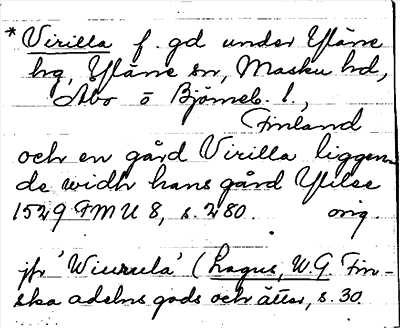 * Virilla f. gd under Yläne
hg, Yläne sn, Masku hd,
Åbo o Björneb. l.,
Finland
och en gård Virilla liggen-
de widh hans gård Ylile
1529 FMU 8, s. 280. orig.
jfr 'Wiurula' (Lagus, W.G. Fin-
ska adelns gods och ätter, s. 30.